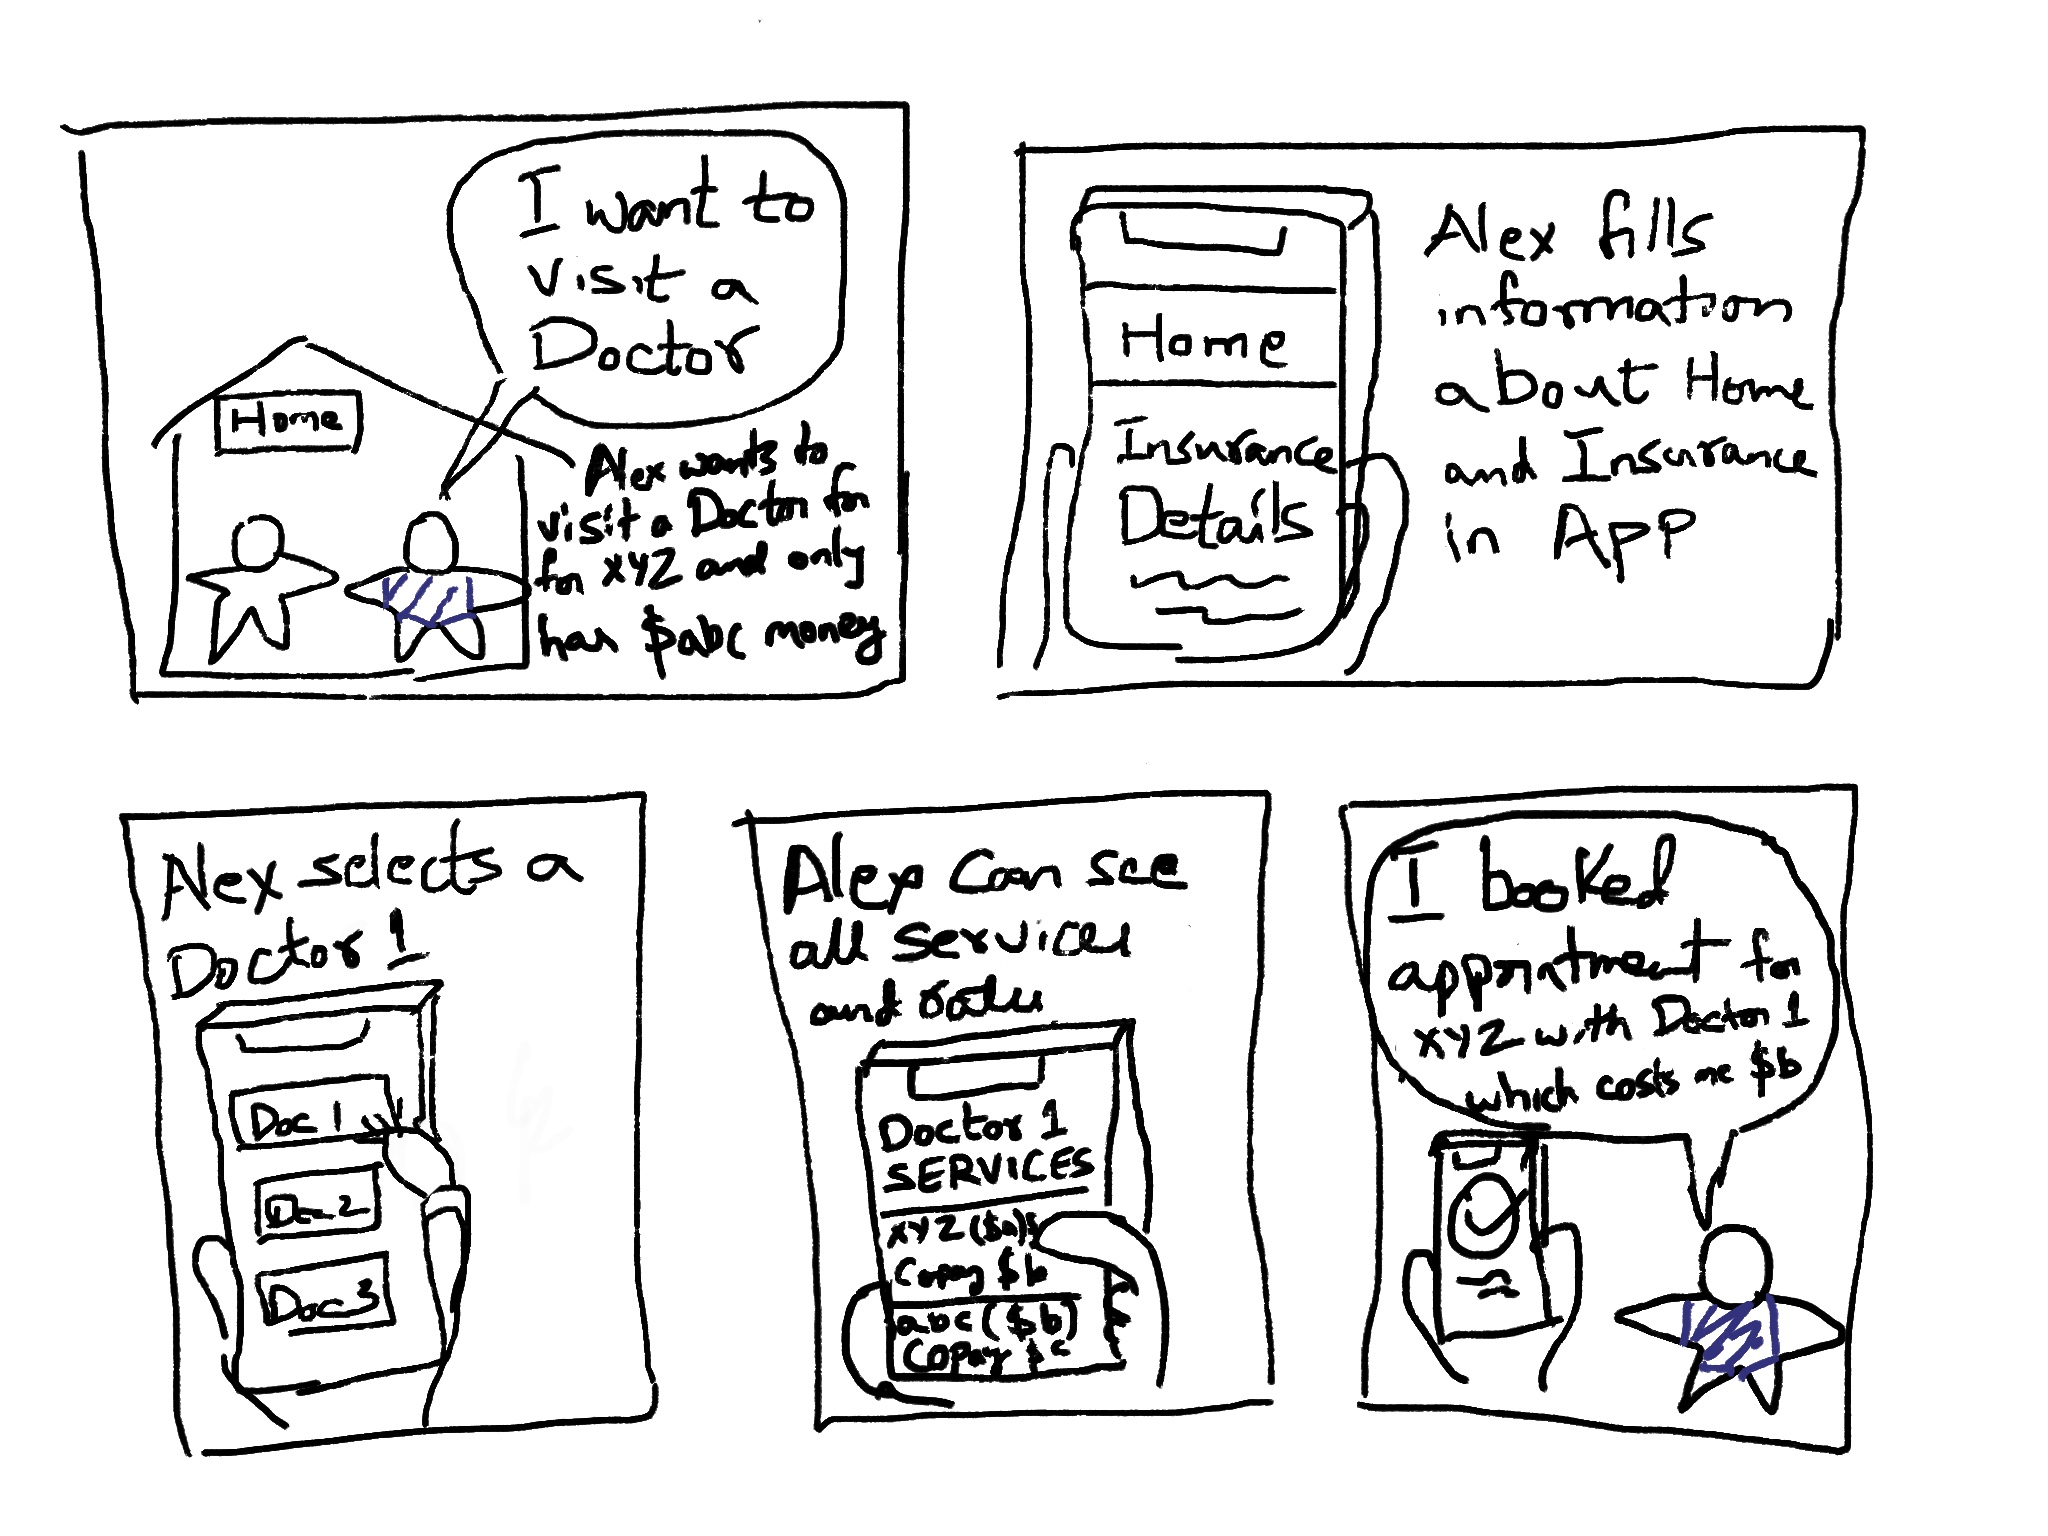 I want to
visit a
Doctor
Home
Alex wants to
visit a Doctor for
for XYZ and only
has $abc money
Home
Insurance
Details
Alex fills
information
about Home
and Insurance
in App
Alex selects a
Doctor 1
Doc 1
Doc 2
Doc 3
Alex can see
all services
and rates
Doctor 1
SERVICES
XYZ ($a)
Copay $b
abc ($b)
Copay $c
I booked
appointment for
XYZ with Doctor 1
which costs me $b